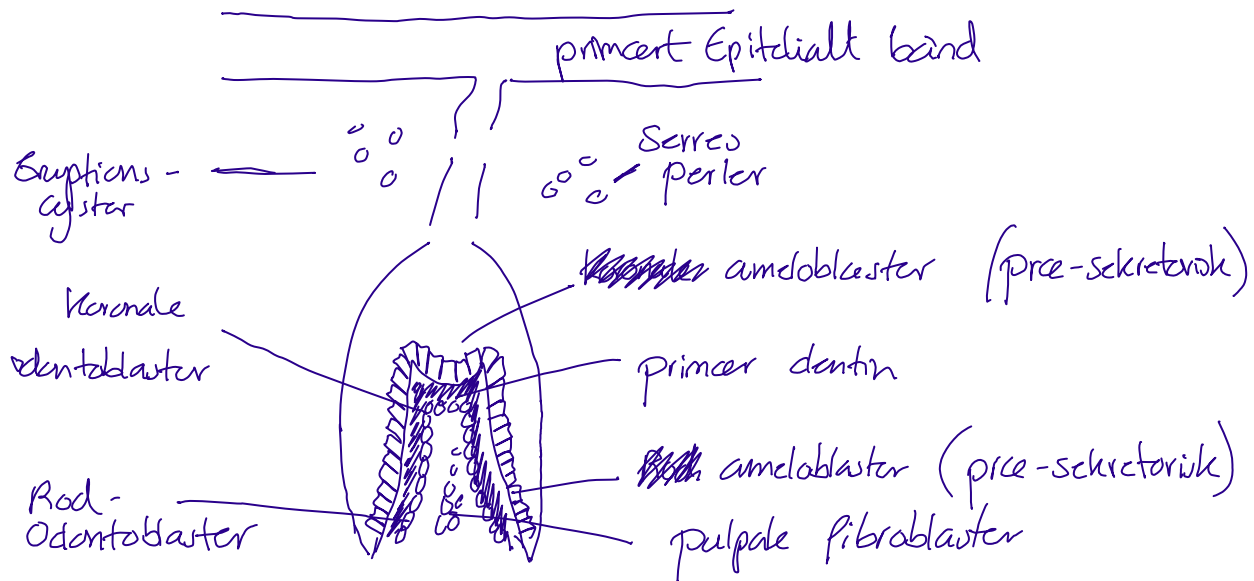 primært Epitelialt bånd
Serres
perler
Eruptions -
cyster
ameloblaster (præ-sekretorisk)
Koronale
odontoblaster
primær dentin
ameloblaster (præ-sekretorisk)
Rod -
Odontoblaster
pulpale fibroblaster